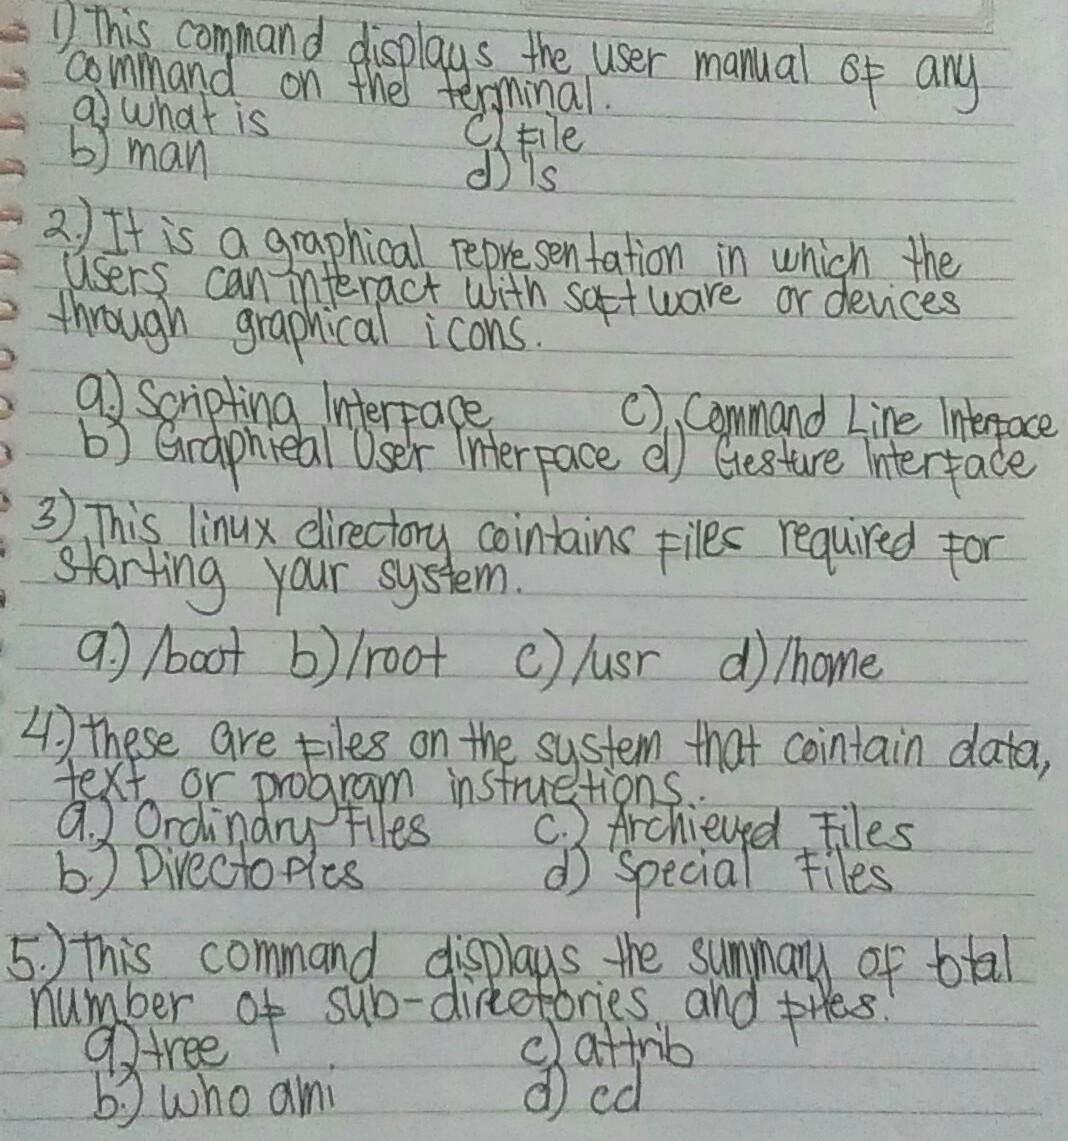 1) This command displays the user manual of any
command on the terminal.
a) what is c) file
b) man d) ls
2.) It is a graphical representation in which the
users can interact with software or devices
through graphical icons.
a.) Scripting Interface c) Command Line Interface
b) Graphical User Interface d) Gesture Interface
3) This linux directory cointains files required for
starting your system.
a.) /boot b) /root c) /usr d) /home
4.) these are files on the system that cointain data,
text or program instructions.
a.) Ordinary files c.) Archieved Files
b.) Directories d) Special Files
5.) this command displays the summary of total
number of sub-directories and files.
a.) tree c) attrib
b.) who ami d) cd